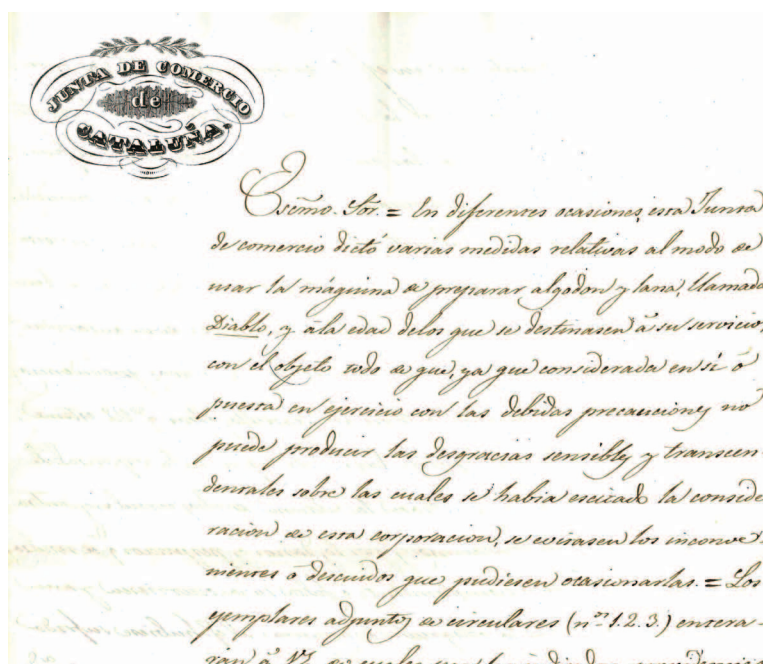 JUNTA DE COMERCIO
de
CATALUÑA.
Escmo. Sor. = En diferentes ocasiones, esta Junta
de comercio dictó varias medidas relativas al modo de
usar la máquina de preparar algodon y lana, llamada
Diablo, y a la edad de los que se destinasen á su servicio,
con el objeto todo de que, ya que considerada en sí ó
puesta en ejercicio con las debidas precauciones no
puede producir las desgracias sensibles y transcen-
dentales sobre las cuales se habia escitado la conside-
racion de esta corporacion, se evitasen los inconve-
nientes ó descuidos que pudiesen ocasionarlas. = Los
ejemplares adjuntos de circulares (nos. 1. 2. 3.) entera-
rán á V.